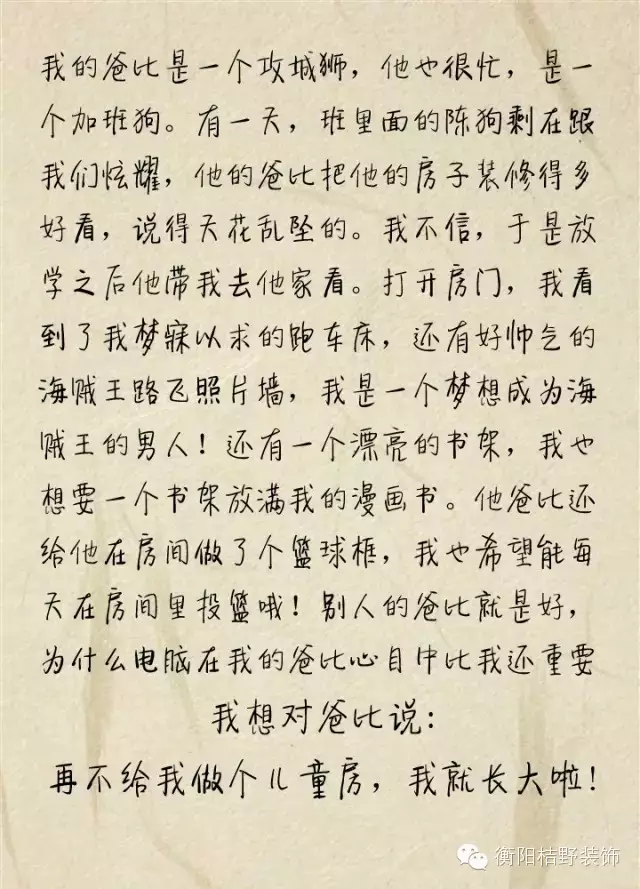 我的爸比是一个攻城狮，他也很忙，是一
个加班狗。有一天，班里面的陈狗剩在跟
我们炫耀，他的爸比把他的房子装修得多
好看，说得天花乱坠的。我不信，于是放
学之后他带我去他家看。打开房门，我看
到了我梦寐以求的跑车床，还有好帅气的
海贼王路飞照片墙，我是一个梦想成为海
贼王的男人！还有一个漂亮的书架，我也
想要一个书架放满我的漫画书。他爸比还
给他在房间做了个篮球框，我也希望能每
天在房间里投篮哦！别人的爸比就是好，
为什么电脑在我的爸比心目中比我还重要
我想对爸比说：
再不给我做个儿童房，我就长大啦！
衡阳桔野装饰